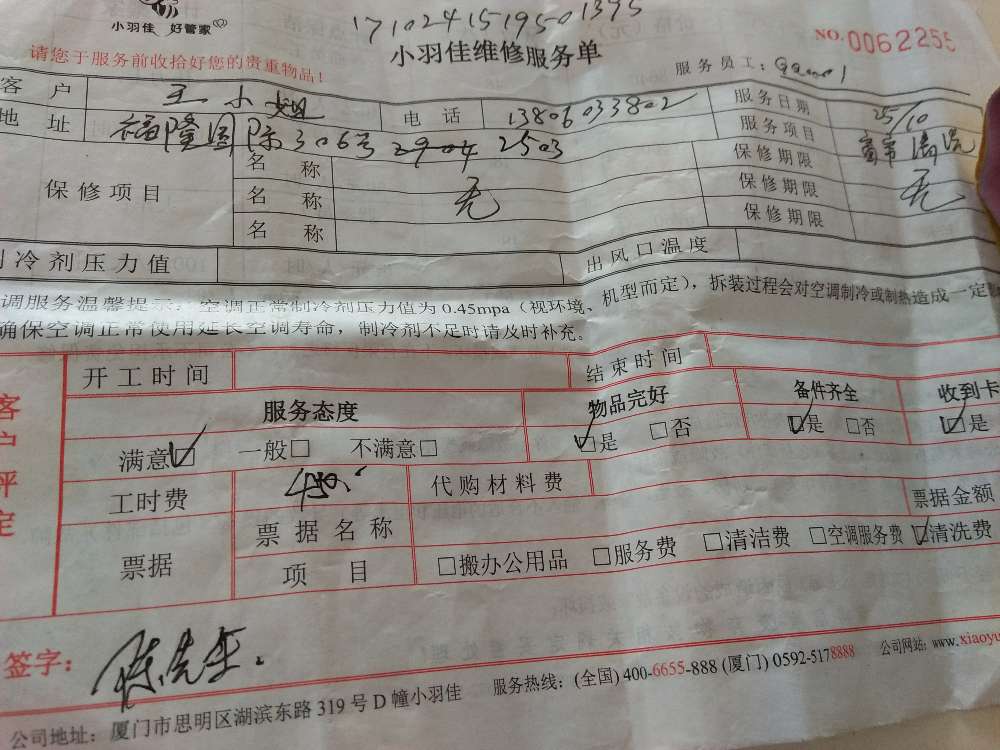 小羽佳 好管家
1710241519501395
小羽佳维修服务单
NO.0062255
请您于服务前收拾好您的贵重物品!
服务员工:
客户 王小姐 电话 13806033802 服务日期 25/10
地址 福隆国际306号2904 2503 服务项目 窗帘清洗
保修项目 名称 保修期限
名称 无 保修期限 无
名称 保修期限
制冷剂压力值 出风口温度
调服务温馨提示:空调正常制冷剂压力值为0.45mpa(视环境、机型而定),拆装过程会对空调制冷或制热造成一定
确保空调正常使用延长空调寿命,制冷剂不足时请及时补充。
客户评定
开工时间 结束时间
服务态度 物品完好 备件齐全 收到卡
满意☑ 一般□ 不满意□ ☑是 □否 ☑是 □否 ☑是
工时费 450. 代购材料费
票据 票据名称 票据金额
项目 □搬办公用品 □服务费 □清洁费 □空调服务费 ☑清洗费
签字: 陈先生.
公司地址:厦门市思明区湖滨东路319号D幢小羽佳 服务热线:(全国)400-6655-888(厦门)0592-5178888 公司网站:www.xiaoyu